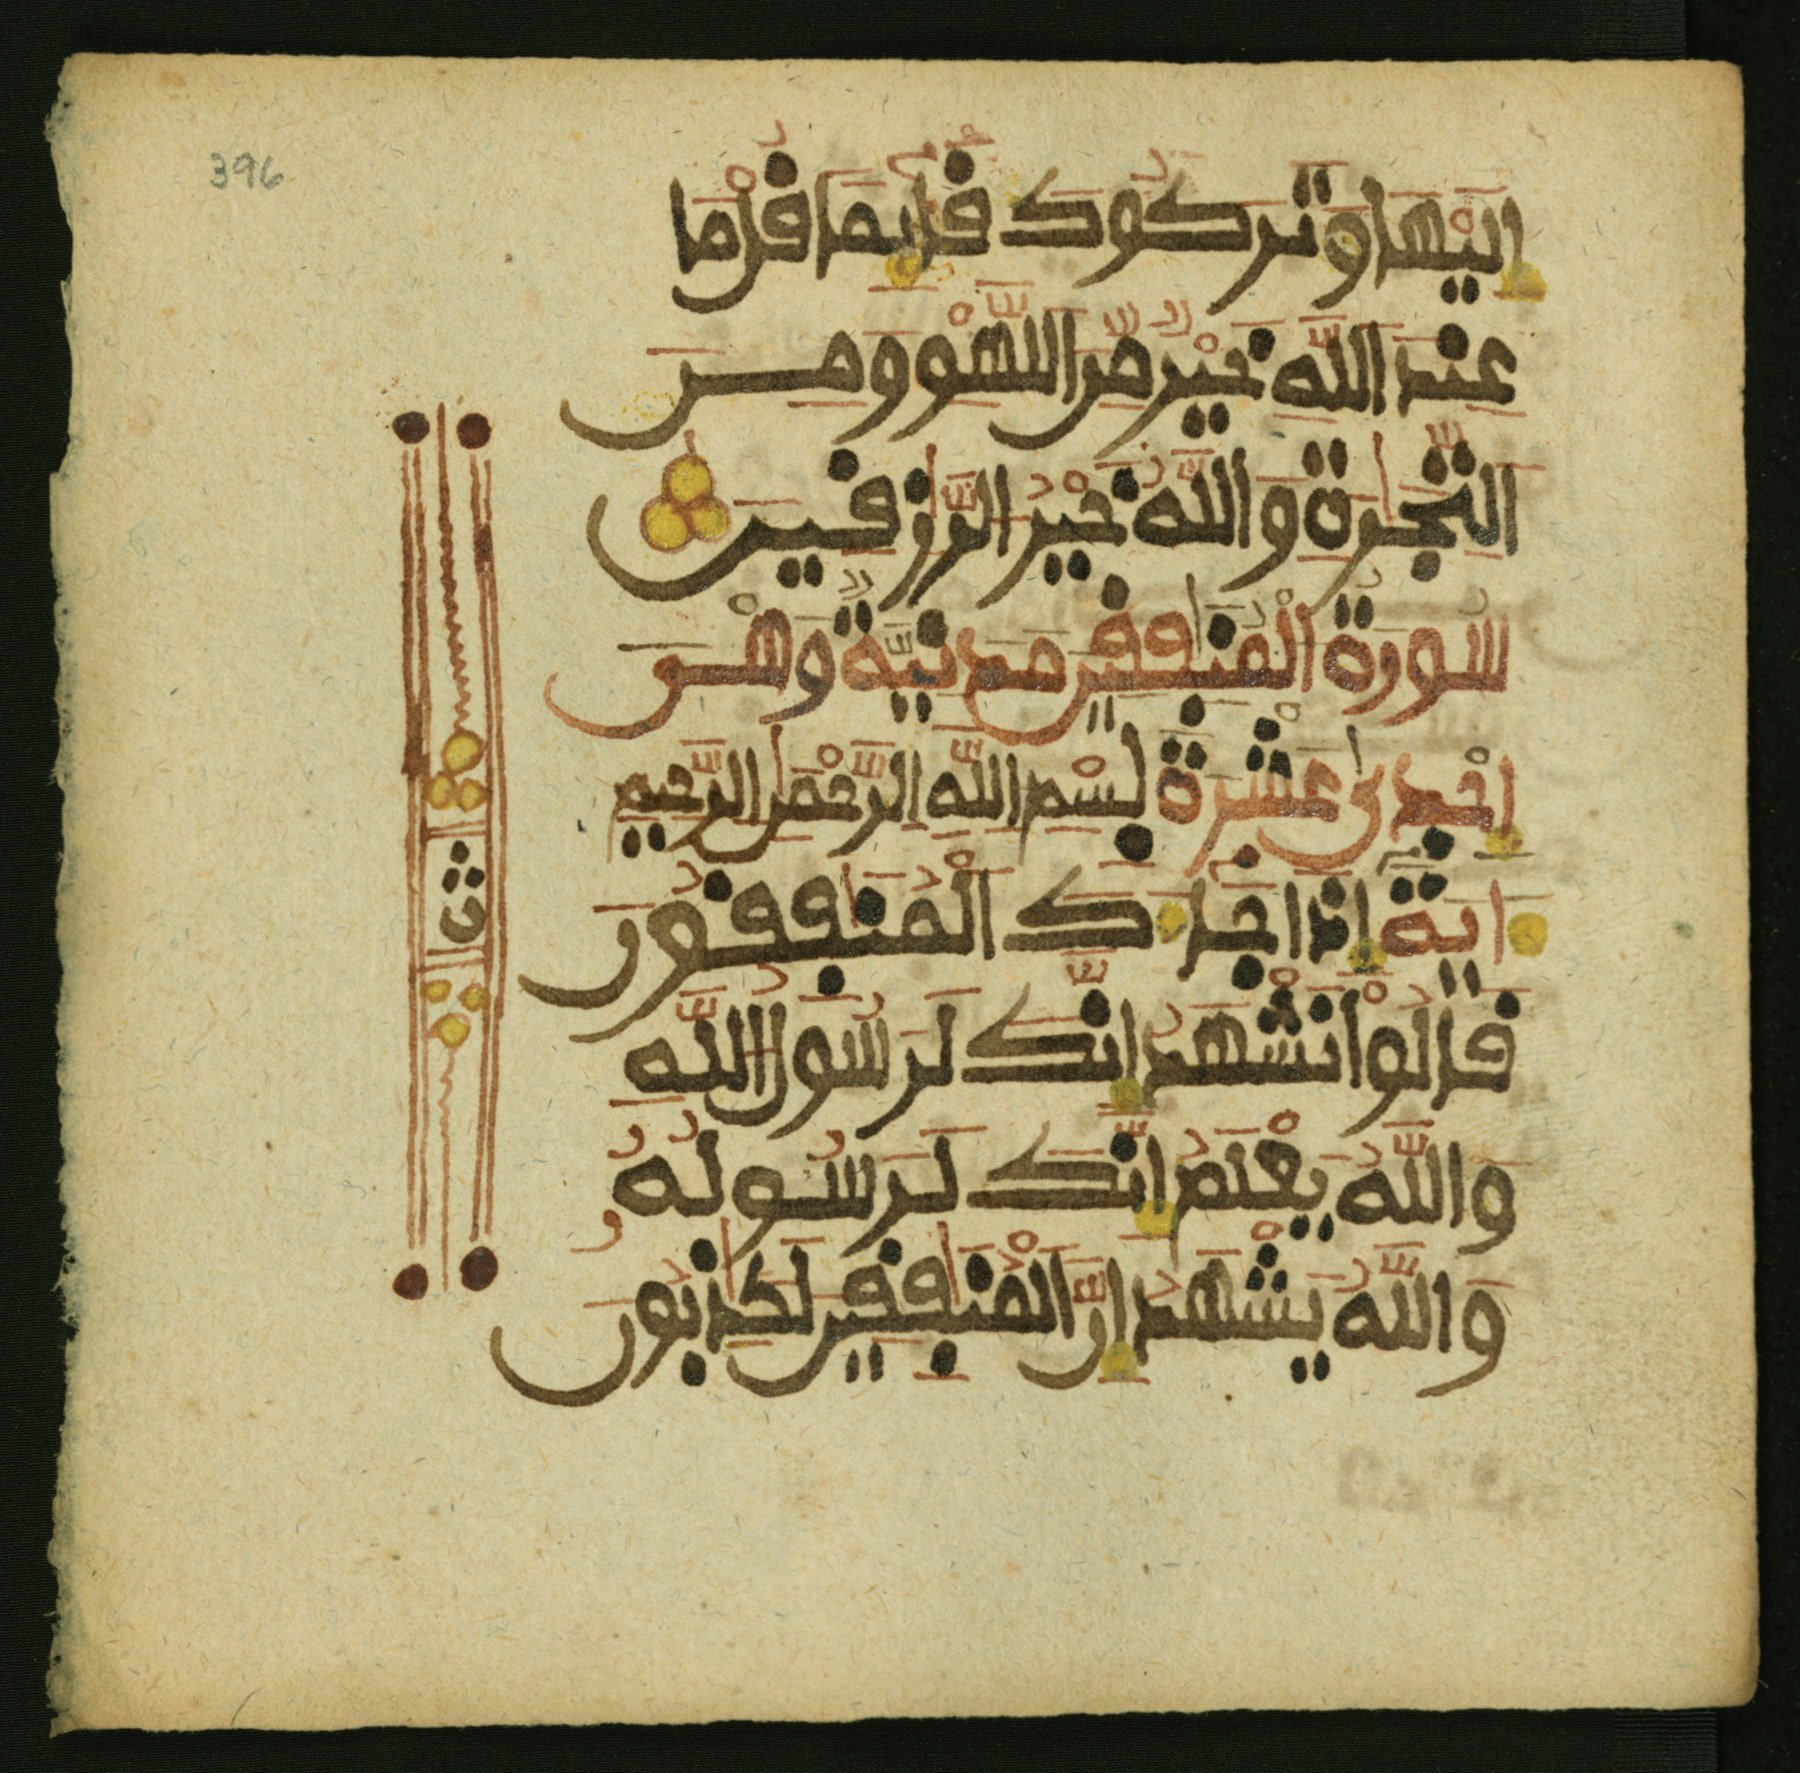 396
إِلَيْهَا وَتَرَكُوكَ قَآئِمًا قُلْ مَا
عِندَ اللَّهِ خَيْرٌ مِّنَ اللَّهْوِ وَمِنَ
التِّجَٰرَةِ وَاللَّهُ خَيْرُ الرَّٰزِقِينَ
سُورَةُ الْمُنَٰفِقِينَ مَدَنِيَّةٌ وَهْىَ
إِحْدٰى عَشْرَةَ بِسْمِ اللَّهِ الرَّحْمَٰنِ الرَّحِيمِ
ءَايَةً إِذَا جَآءَكَ الْمُنَٰفِقُونَ
قَالُواْ نَشْهَدُ إِنَّكَ لَرَسُولُ اللَّهِ
وَاللَّهُ يَعْلَمُ إِنَّكَ لَرَسُولُهُ
وَاللَّهُ يَشْهَدُ إِنَّ الْمُنَٰفِقِينَ لَكَٰذِبُونَ
ثن